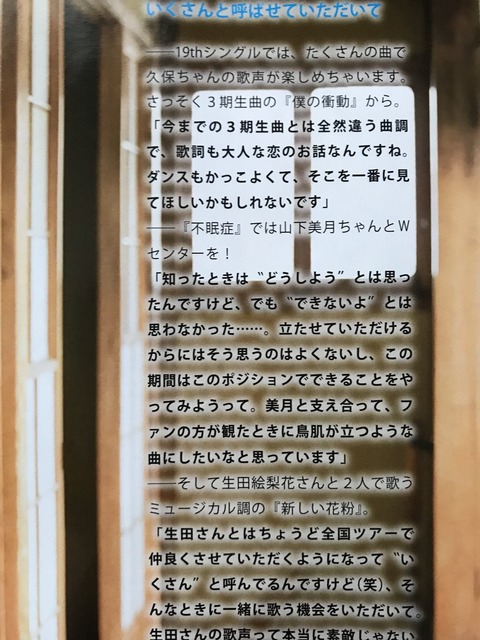 いくさんと呼ばせていただいて
――19thシングルでは、たくさんの曲で
久保ちゃんの歌声が楽しめちゃいます。
さっそく３期生曲の『僕の衝動』から。
「今までの３期生曲とは全然違う曲調
で、歌詞も大人な恋のお話なんですね。
ダンスもかっこよくて、そこを一番に見
てほしいかもしれないです」
――『不眠症』では山下美月ちゃんとＷ
センターを！
「知ったときは〝どうしよう〟とは思っ
たんですけど、でも〝できないよ〟とは
思わなかった……。立たせていただける
からにはそう思うのはよくないし、この
期間はこのポジションでできることをや
ってみようって。美月と支え合って、フ
ァンの方が観たときに鳥肌が立つような
曲にしたいなと思っています」
――そして生田絵梨花さんと２人で歌う
ミュージカル調の『新しい花粉』。
「生田さんとはちょうど全国ツアーで
仲良くさせていただくようになって〝い
くさん〟と呼んでるんですけど(笑)、そ
んなときに一緒に歌う機会をいただいて。
生田さんの歌声って本当に素敵じゃない